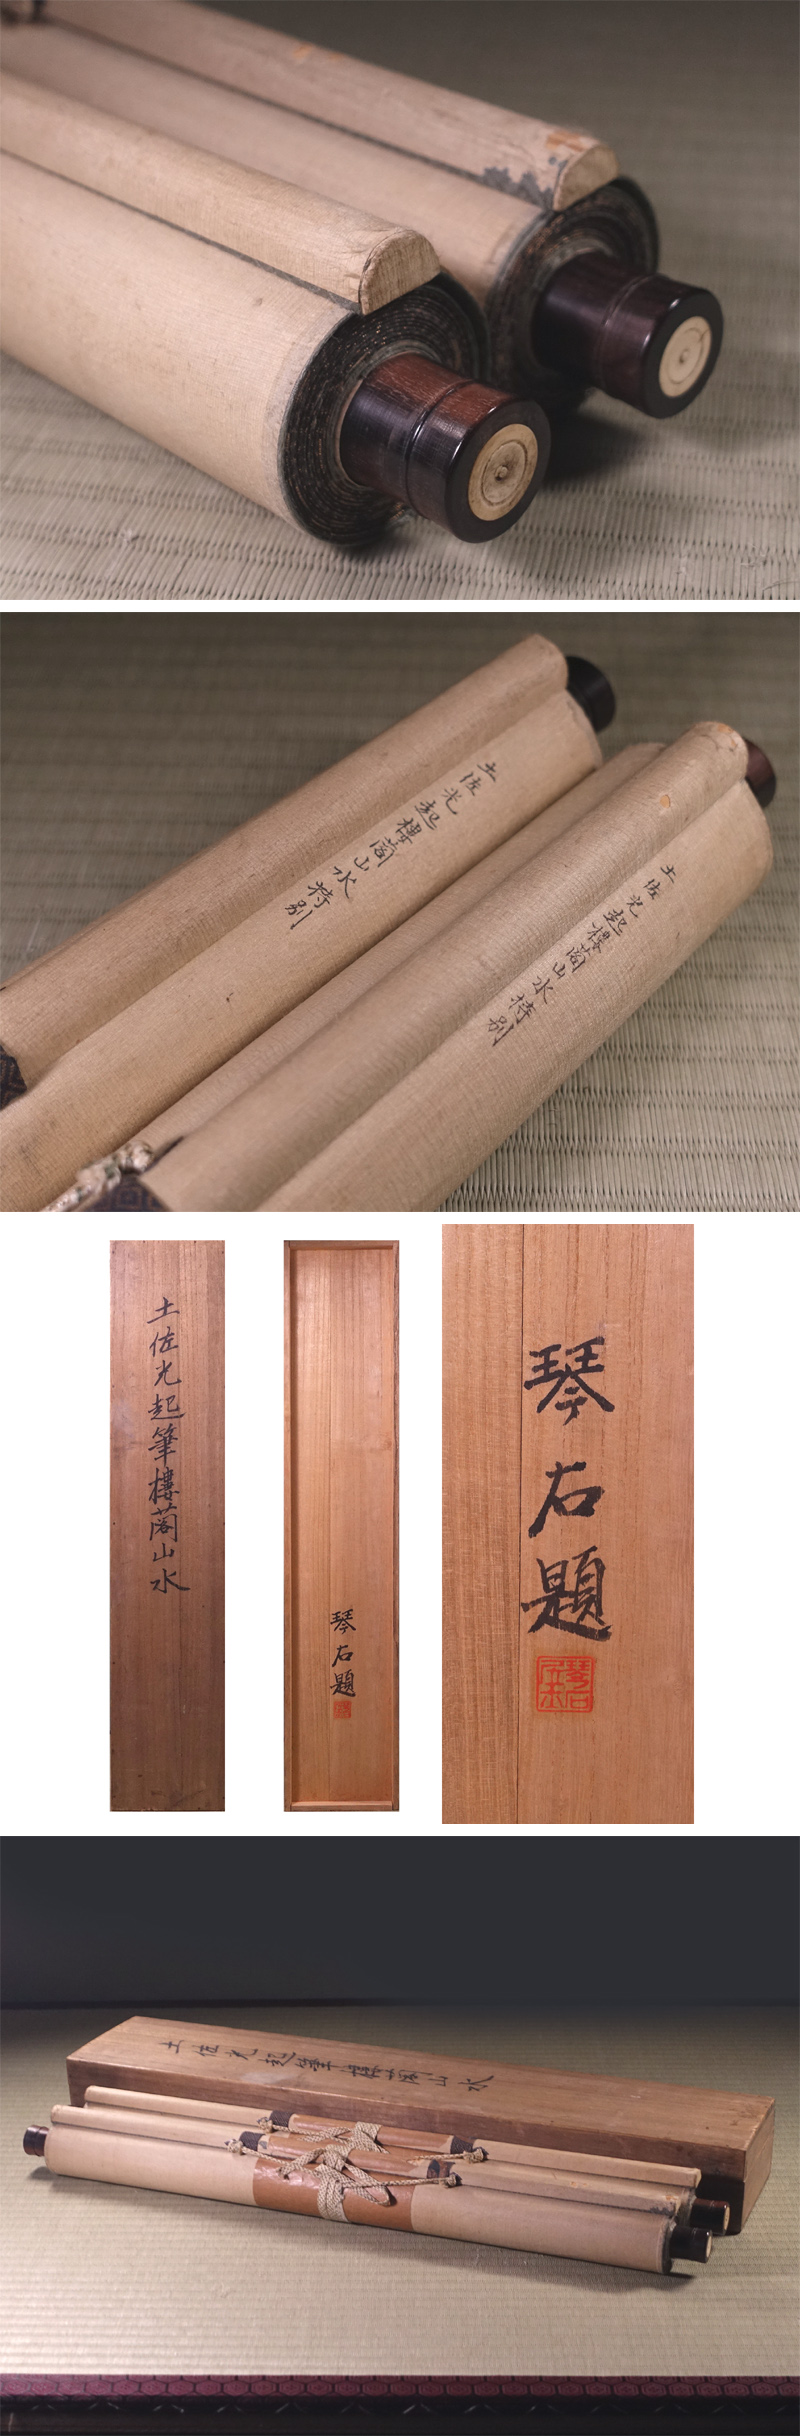 土佐光起樓閣山水特別
土佐光起樓閣山水特別
土佐光起筆樓閣山水
琴石題
琴石題
土佐光起筆樓閣山水